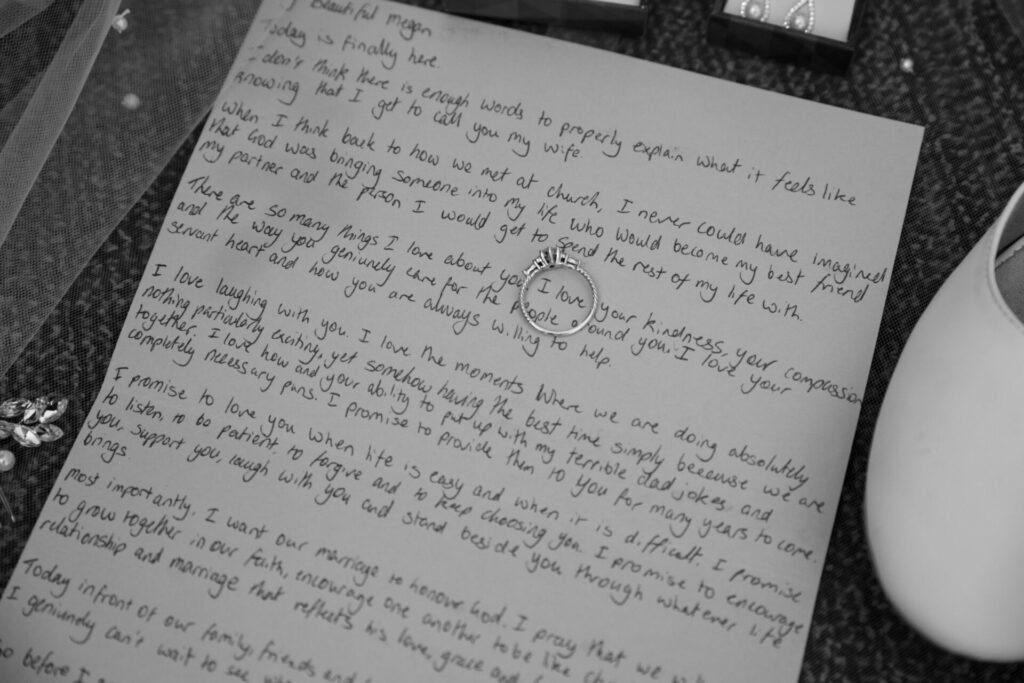 Beautiful megan
Today is finally here.
I don't think there is enough words to properly explain what it feels like
knowing that I get to call you my wife.
When I think back to how we met at church, I never could have imagined
that God was bringing someone into my life who would become my best friend
my partner and the person I would get to spend the rest of my life with.
There are so many things I love about you. I love your kindness, your compassion
and the way you geniunely care for the people around you. I love your
servant heart and how you are always willing to help.
I love laughing with you. I love the moments Where we are doing absolutely
nothing particularly exciting, yet somehow having the best time simply because we are
together. I love how and your ability to put up with my terrible dad jokes and
completely necessary puns. I promise to provide them to you for many years to come.
I promise to love you when life is easy and when it is difficult. I promise
to listen to be patient, to forgive and to keep choosing you. I promise to encourage
you, support you, laugh with you and stand beside you through whatever life
brings
most importantly, I want our marriage to honour God. I pray that we
to grow together in our faith, encourage one another to be like
relationship and marriage that reflects his love, grace and
Today infront of our family, friends and
I geniunely can't wait to see
So before I